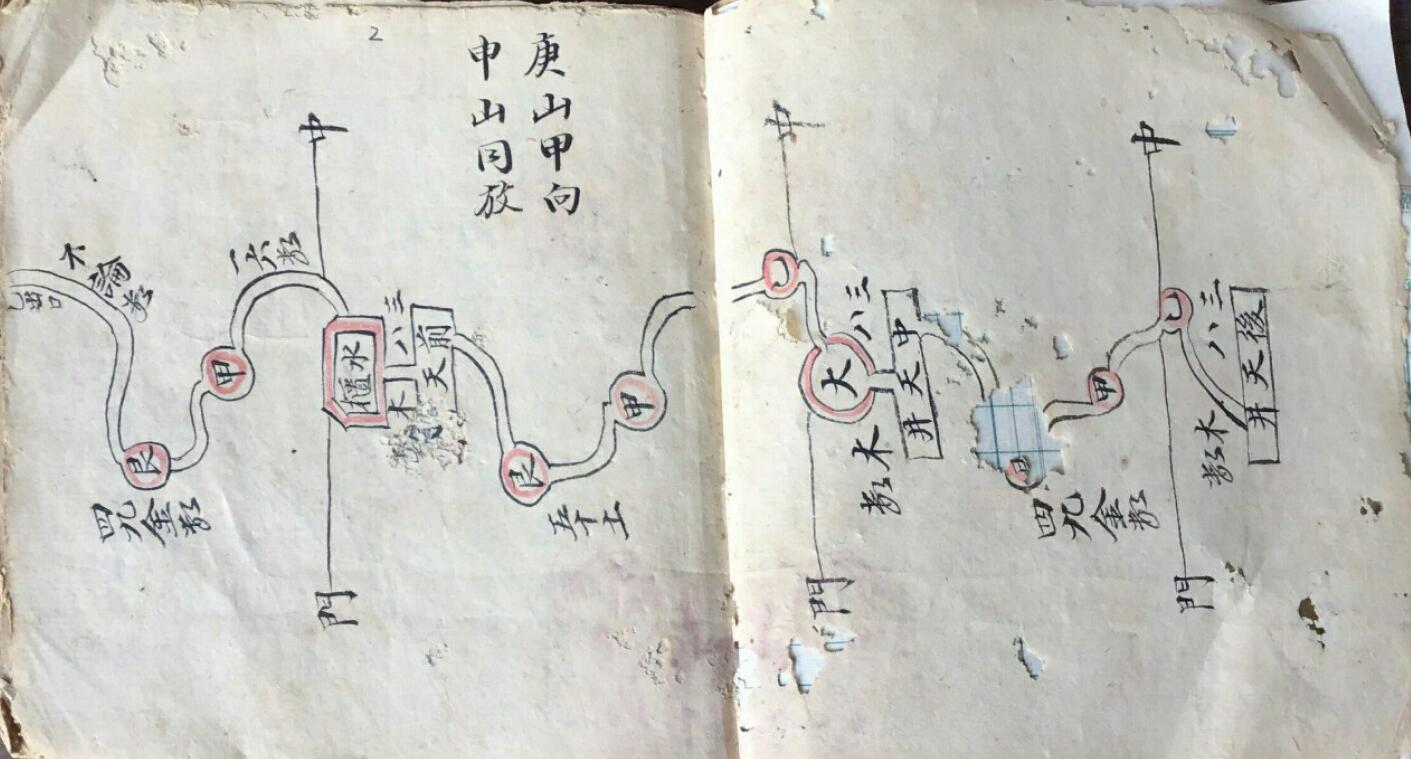 庚山甲向
申山同放
中
三八
後天井
木数
門
甲
四九金数
中
三八
大
中天井
木数
門
甲
艮
五十土
2
中
三八
前天
木
水櫃
門
一六数
甲
艮
四九金数
不論数